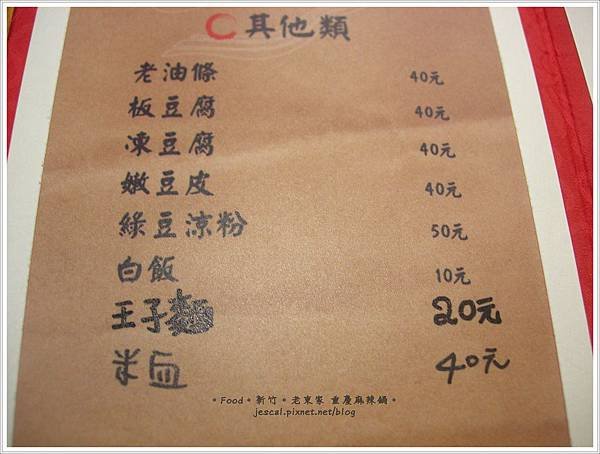 其他類
老油條 40元
板豆腐 40元
凍豆腐 40元
嫩豆皮 40元
綠豆涼粉 50元
白飯 10元
王子麵 20元
米血 40元
。Food。新竹。老東家 重慶麻辣鍋。
jescal.pixnet.net/blog